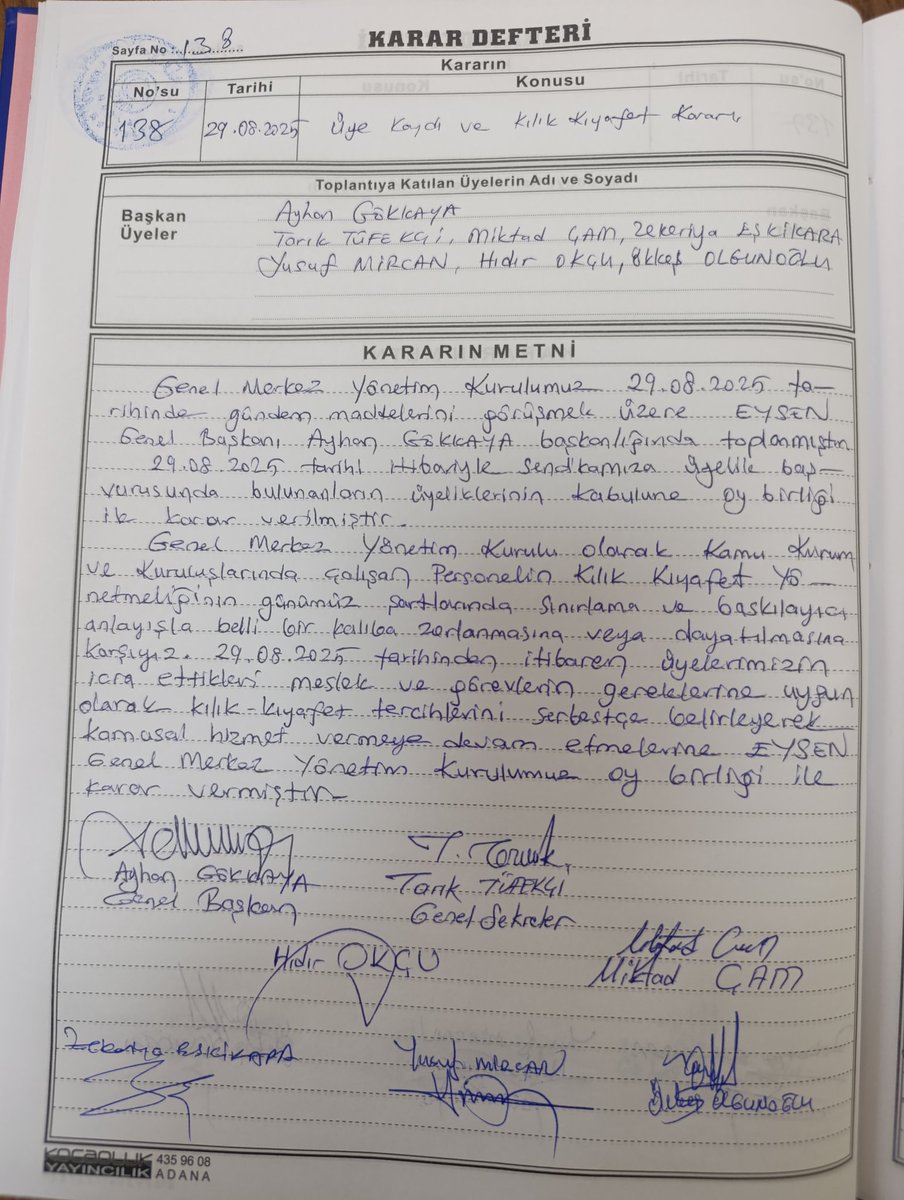 KARAR DEFTERİ
Sayfa No : 138
Kararın
No'su
Tarihi
Konusu
138
29.08.2025
Üye Kaydı ve Kılık Kıyafet Kararı
Toplantıya Katılan Üyelerin Adı ve Soyadı
Başkan Ayhan GÖKKAYA
Üyeler Tarık TÜFEKÇİ, Miktad ÇAM, Zekeriya ESKİKARA
Yusuf MİRCAN, Hıdır OKÇU, Ökkeş OLGUNOĞLU
KARARIN METNİ
Genel Merkez Yönetim Kurulumuz 29.08.2025 ta-
rihinde gündem maddelerini görüşmek üzere EYSEN
Genel Başkanı Ayhan GÖKKAYA başkanlığında toplanmıştır.
29.08.2025 tarihi itibariyle sendikamıza üyelik baş-
vurusunda bulunanların üyeliklerinin kabulune oy birliği
ile karar verilmiştir.
Genel Merkez Yönetim Kurulu olarak Kamu Kurum
ve Kuruluşlarında çalışan Personelin Kılık Kıyafet Yö-
netmeliğinin günümüz şartlarında sınırlama ve baskılayıcı
anlayışla belli bir kalıba zorlanmasına veya dayatılmasına
karşıyız. 29.08.2025 tarihinden itibaren üyelerimizin
icra ettikleri meslek ve görevlerin gereklerine uygun
olarak kılık-kıyafet tercihlerini serbestçe belirleyerek
kamusal hizmet vermeye devam etmelerine EYSEN
Genel Merkez Yönetim Kurulumuz oy birliği ile
karar vermiştir.
Ayhan GÖKKAYA
Genel Başkan
T. Tarık
Tarık TÜFEKÇİ
Genel Sekreter
Hıdır OKÇU
Miktad Çam
Miktad ÇAM
Zekeriya ESKİKARA
Yusuf MİRCAN
Ökkeş OLGUNOĞLU
KOCAOLUK
YAYINCILIK
435 96 08
ADANA